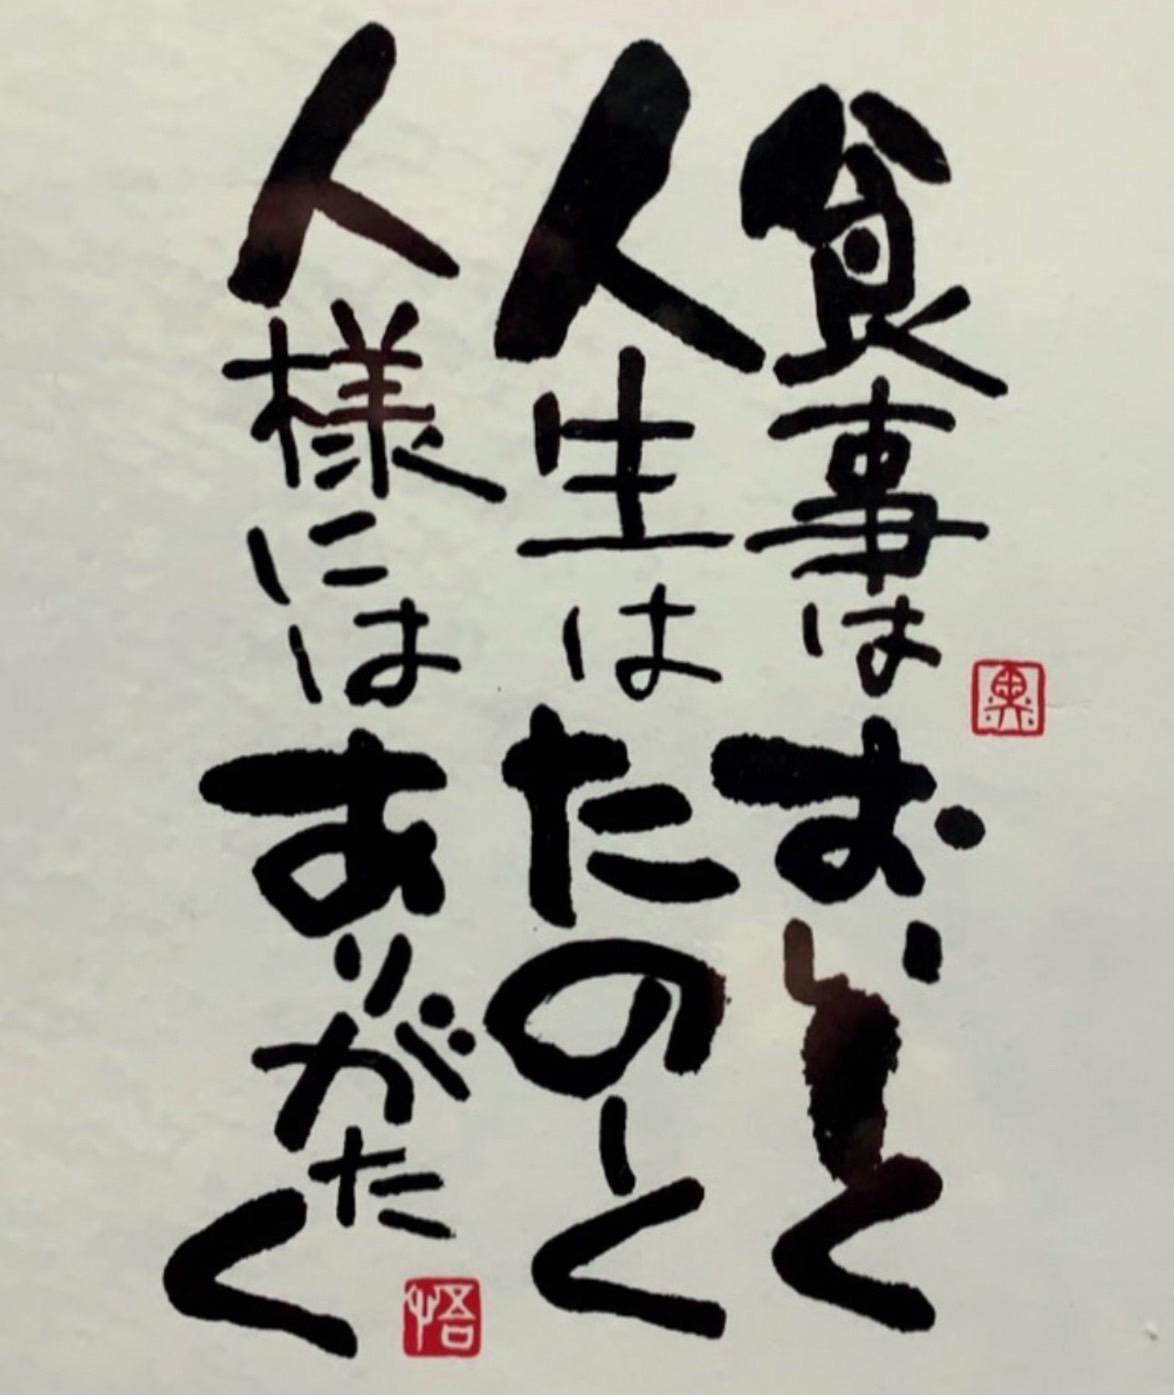 食事はおいしく
人生はたのしく
人様にはありがたく
悟